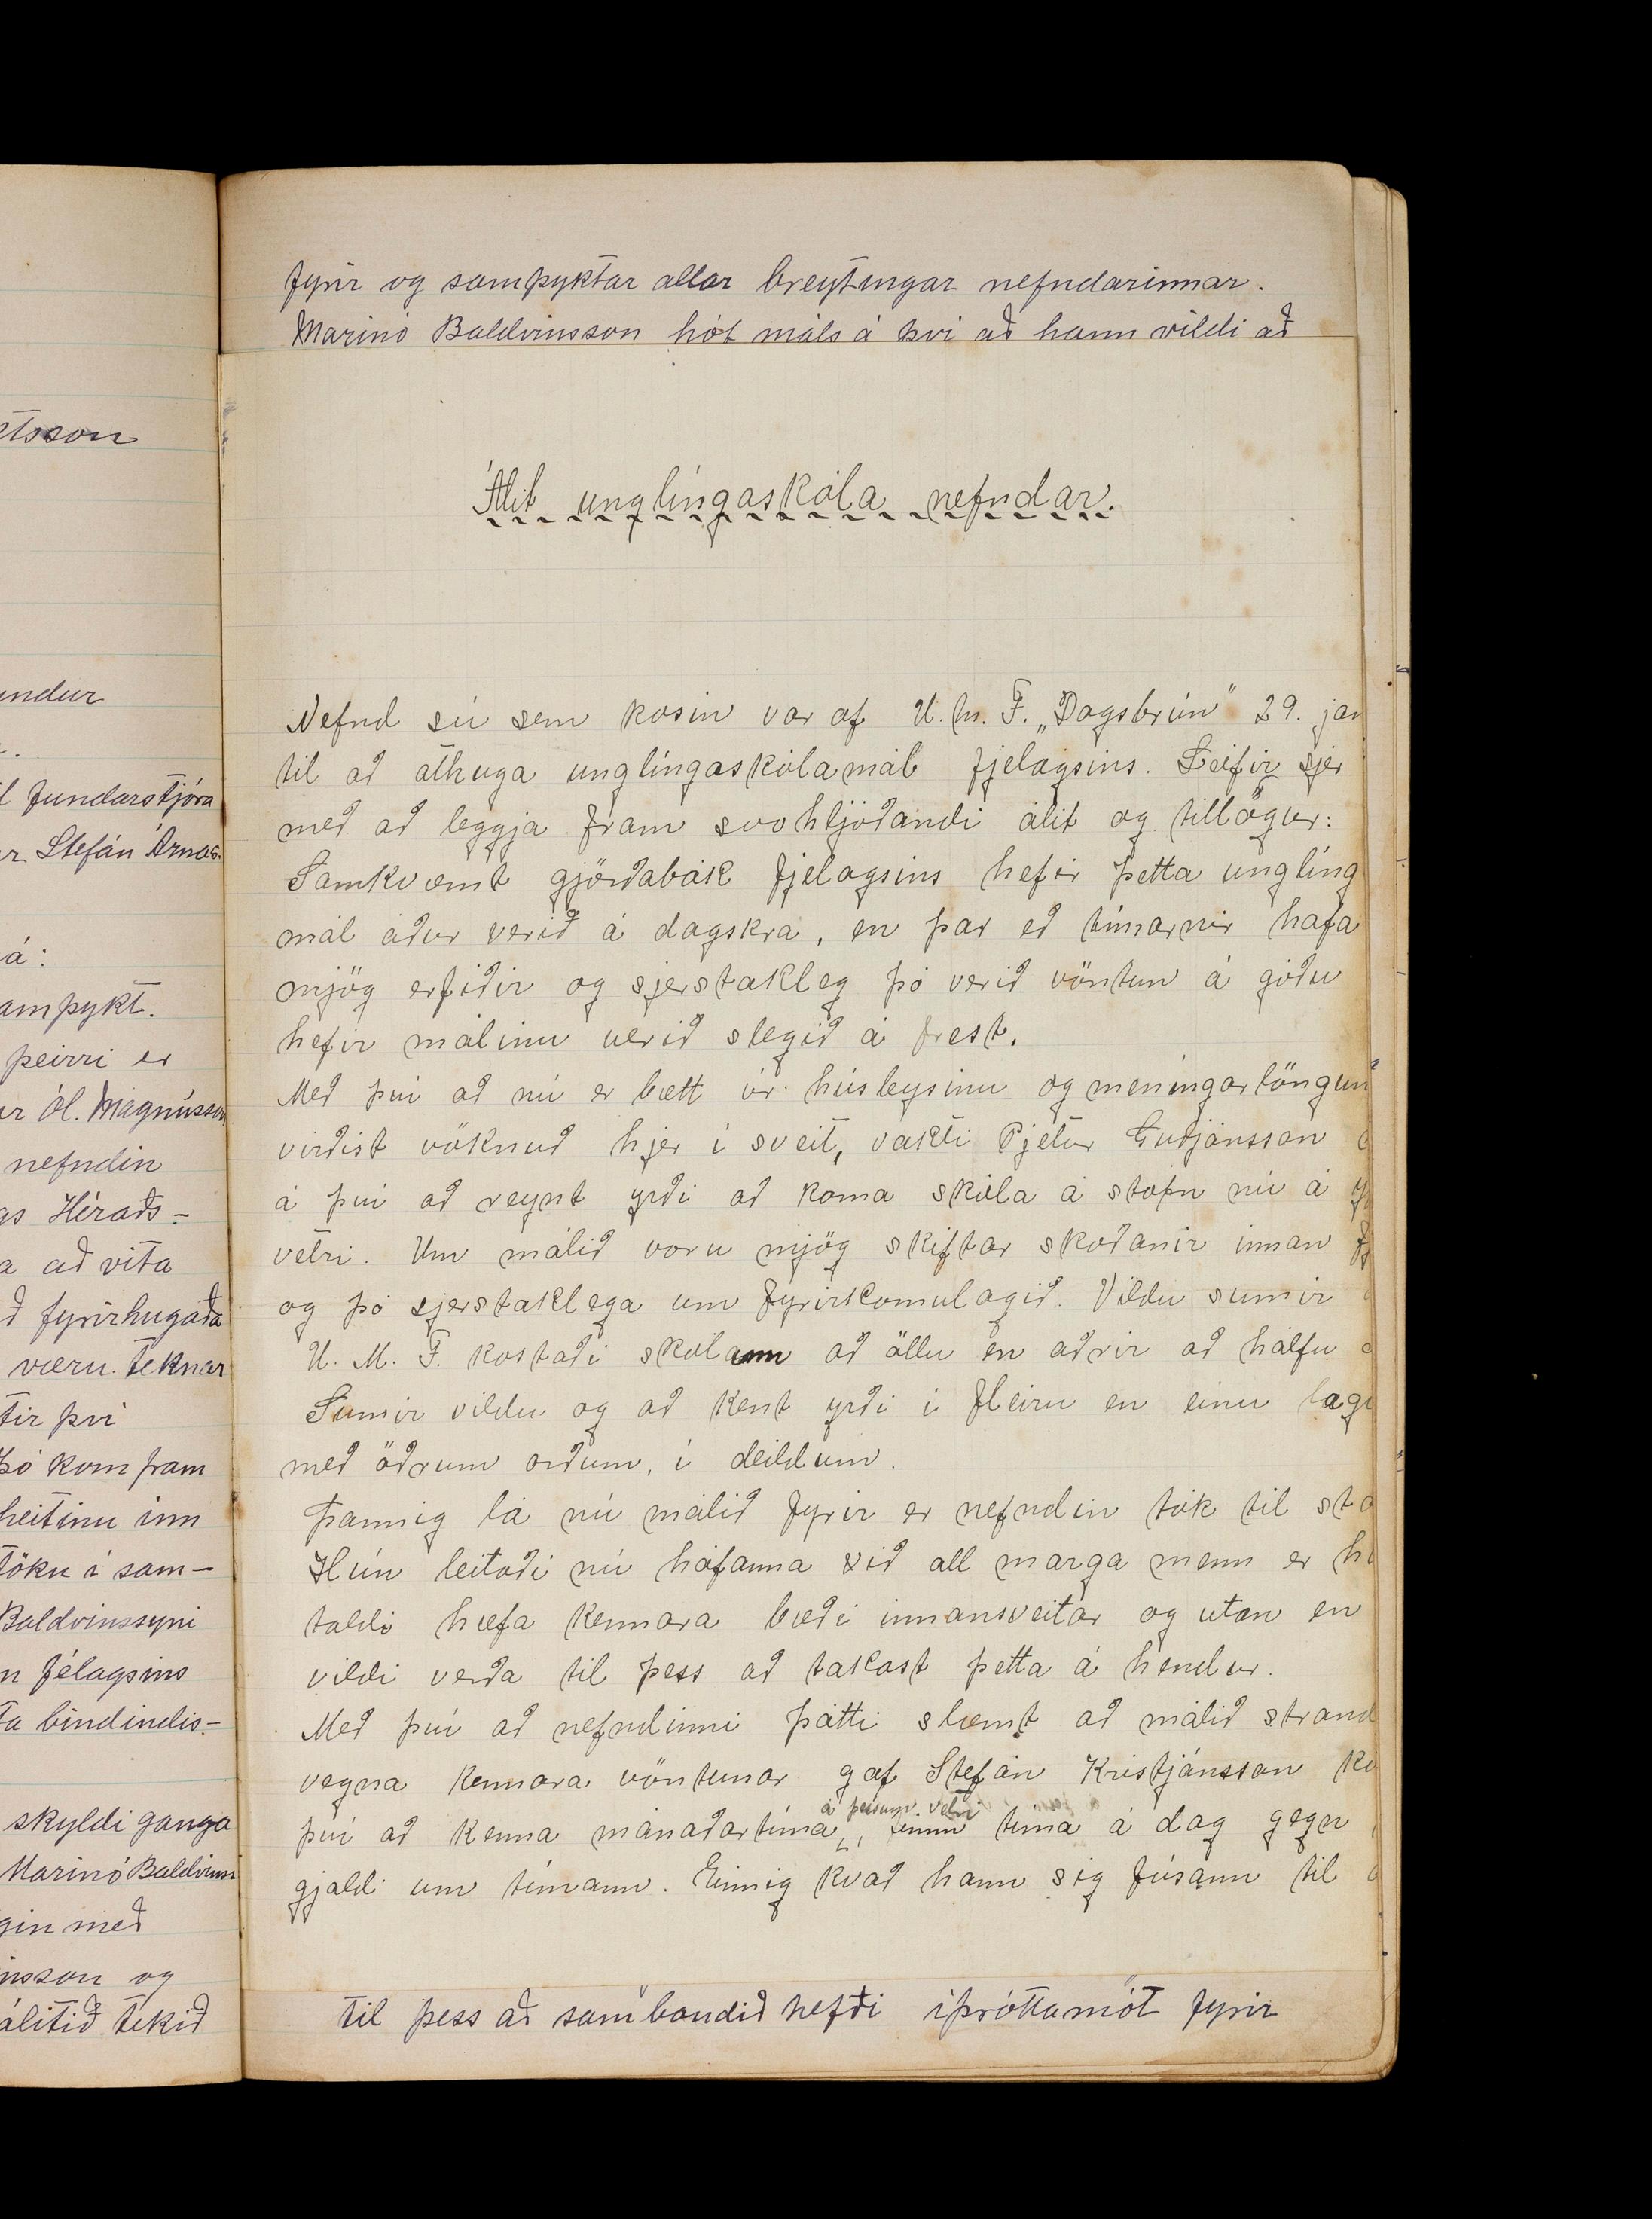 etsson
undur
fundarstjóra
Stefán Árnas.
á:
ampykt.
þeirri er
ur Ól. Magnússon
nefndin
as Héraðs-
a að vita
ð fyrirhugaða
væru teknar
tir því
Þó kom fram
heitinu inn
töku í sam-
Baldvinssyni
n félagsins
ta bindindis-
skyldi ganga
Marinó Baldvinss
gin með
nsson og
álitið tekið
fyrir og samþyktar allar breytingar nefndarinnar.
Marinó Baldvinsson hót máls á því að hann vildi að
Álit unglíngaskóla nefndar.
Nefnd sú sem kosin var af U. M. F. „Dagsbrún" 29. jan
til að athuga unglíngaskólamál fjelagsins. Leifir sjer
með að leggja fram svohljóðandi álit og tillögur:
Samkvæmt gjörðabók fjelagsins hefir þetta unglíng
mál áður verið á dagskrá, en þar eð tímarnir hafa
mjög erfiðir og sjerstakleg þó verið vöntun á góðu
hefir málinu verið slegið á frest.
Með því að nú er bætt úr húsleysinu og meníngarlöngun
virðist vöknuð hjer í sveit, vakti Pjetur Guðjónsson
á því að reynt yrði að koma skóla á stofn nú á
vetri. Um málið voru mjög skiftar skoðanir innan
og þó sjerstaklega um fyrirkomulagið. Vildu sumir
U. M. F. kostaði skólann að öllu en aðrir að hálfu
Sumir vildu og að kent yrði í fleiru en einu lagi
með öðrum orðum, í deildum.
Þannig lá nú málið fyrir er nefndin tók til sta
Hún leitaði nú hófanna við all marga menn er hú
taldi hæfa kennara bæði innansveitar og utan en
vildi verða til þess að takast þetta á hendur.
Með því að nefndinni þótti slæmt að málið strand
vegna kennara vöntunar gaf Stefán Kristjánsson ko
á þessum vetri
því að kenna mánaðartíma, tíma á dag gegn
gjaldi um tímann. Einnig kvað hann sig fúsann til
til þess að sambandið hefði íþróttamót fyrir